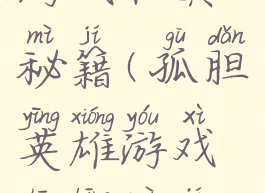 mì jí gū dǎn
秘籍(孤胆
yīng xióng yóu xì
英雄游戏